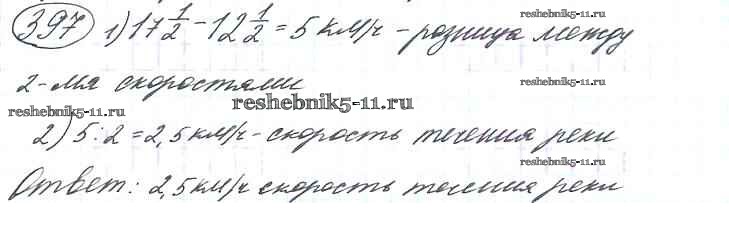 397 1) 17 1/2 - 12 1/2 = 5 км/ч - разница между
reshebnik5-11.ru
2-мя скоростями
reshebnik5-11.ru
reshebnik5-11.ru
reshebnik5-11.ru
2) 5 : 2 = 2,5 км/ч - скорость течения реки
reshebnik5-11.ru
Ответ: 2,5 км/ч скорость течения реки